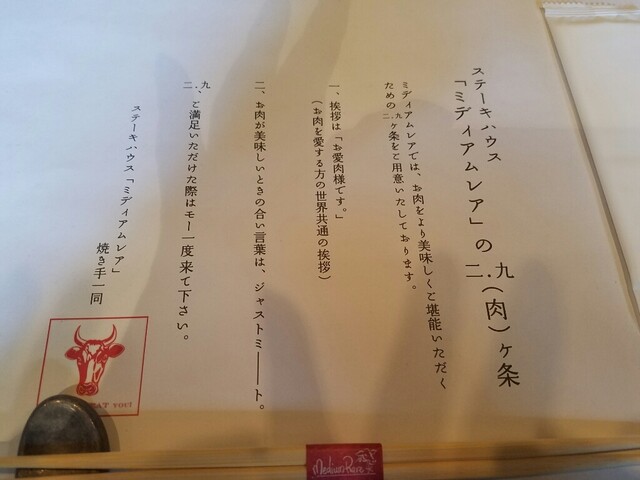 ステーキハウス
「ミディアムレア」の二.九(肉)ヶ条
ミディアムレアでは、お肉をより美味しくご堪能いただく
ための二.九ヶ条をご用意いたしております。
一、挨拶は「お愛肉様です。」
(お肉を愛する方の世界共通の挨拶)
二、お肉が美味しいときの合い言葉は、ジャストミ――ト。
二.九、ご満足いただけた際はモー一度来て下さい。
ステーキハウス「ミディアムレア」
焼き手一同
YOU!
Medium Rare